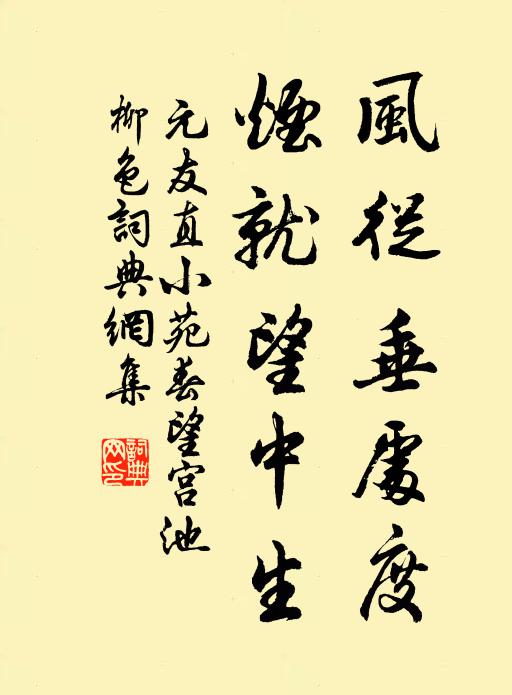 風從垂處度
煙就望中生
元友直小苑春望宮池
柳色詞典網集
詞典
网印